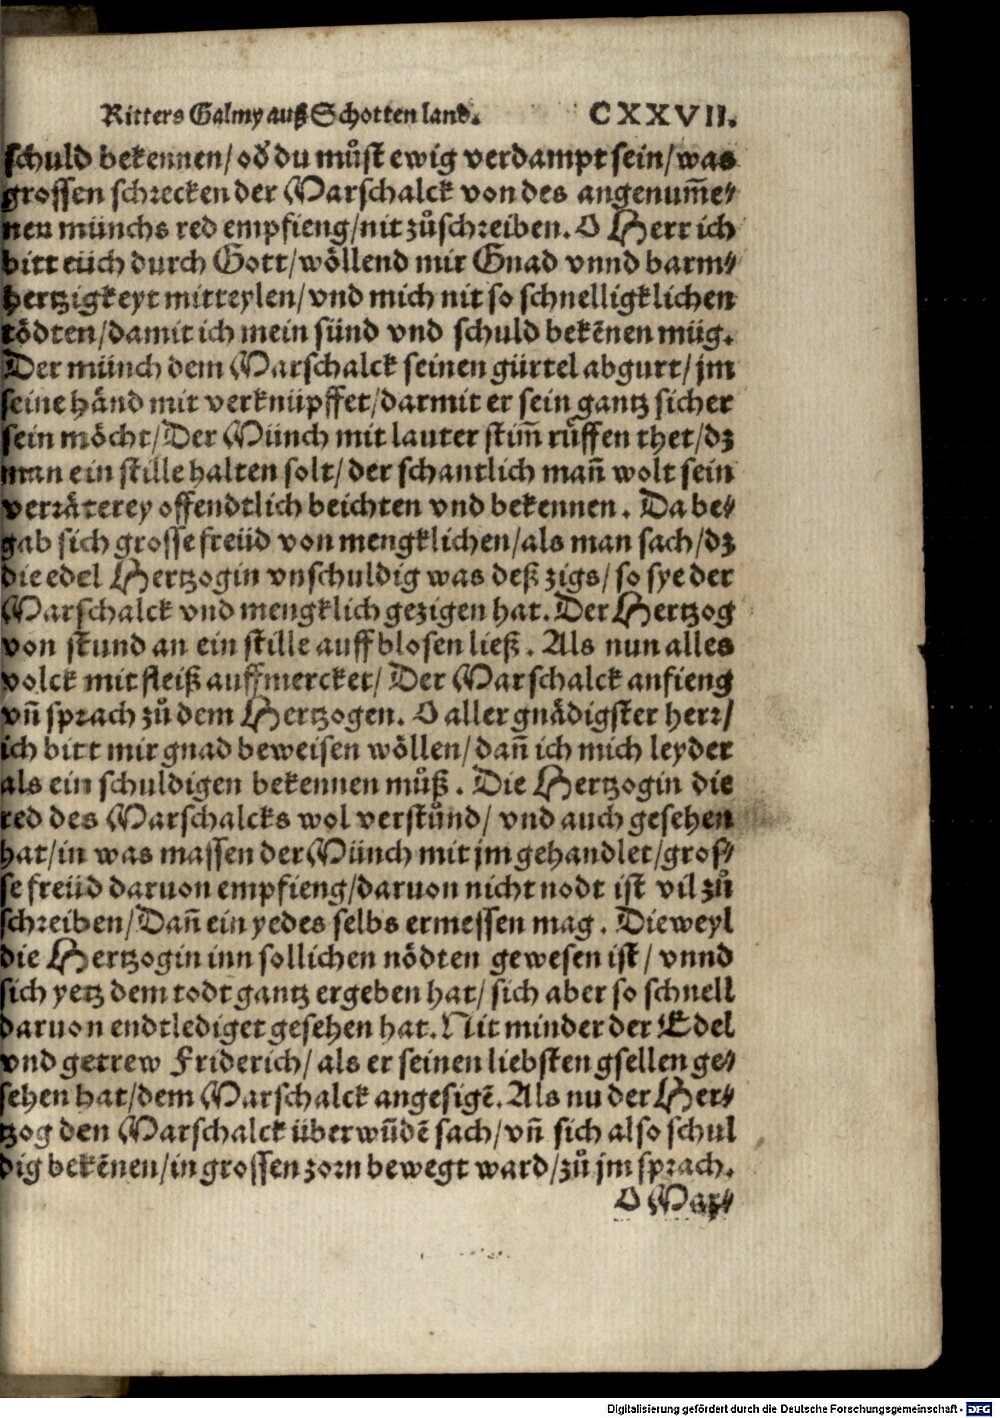 Ritters Galmy auß Schotten land. CXXVII.
schuld bekennen/od̕ du můst ewig verdampt sein/was
grossen schrecken der Marschalck von des angenum̃e⸗
nen münchs red empfieng/nit zůschreiben. O Herr ich
bitt eüch durch Gott/wöllend mir Gnad vnnd barm⸗
hertzigkeyt mitteylen/vnd mich nit so schnelligklichen
tödten/damit ich mein sünd vnd schuld bekẽnen müg.
Der münch dem Marschalck seinen gürtel abgurt/jm
seine händ mit verknüpffet/darmit er sein gantz sicher
sein möcht/Der Münch mit lauter stim̃ růffen thet/dz
man ein stille halten solt/der schantlich mañ wolt sein
verräterey offendtlich beichten vnd bekennen. Da be⸗
gab sich grosse freüd von mengklichen/als man sach/dz
die edel Hertzogin vnschuldig was deß zigs/so sye der
Marschalck vnd mengklich gezigen hat. Der Hertzog
von stund an ein stille auffblosen ließ. Als nun alles
volck mit fleiß auffmercket/Der Marschalck anfieng
vñ sprach zů dem Hertzogen. O aller gnädigster herr/
ich bitt mir gnad beweisen wöllen/dañ ich mich leyder
als ein schuldigen bekennen můß. Die Hertzogin die
red des Marschalcks wol verstůnd/vnd auch gesehen
hat/in was massen der Münch mit jm gehandlet/gros⸗
se freüd daruon empfieng/daruon nicht nodt ist vil zů
schreiben/Dañ ein yedes selbs ermessen mag. Dieweyl
die Hertzogin inn sollichen nödten gewesen ist/vnnd
sich yetz dem todt gantz ergeben hat/sich aber so schnell
daruon endtlediget gesehen hat. Nit minder der Edel
vnd getrew Friderich/als er seinen liebsten gsellen ge⸗
sehen hat/dem Marschalck angesigẽ. Als nu der Her⸗
tzog den Marschalck überwũdẽ sach/vñ sich also schul
dig bekẽnen/in grossen zorn bewegt ward/zů jm sprach.
O Mar⸗
Digitalisierung gefördert durch die Deutsche Forschungsgemeinschaft - DFG